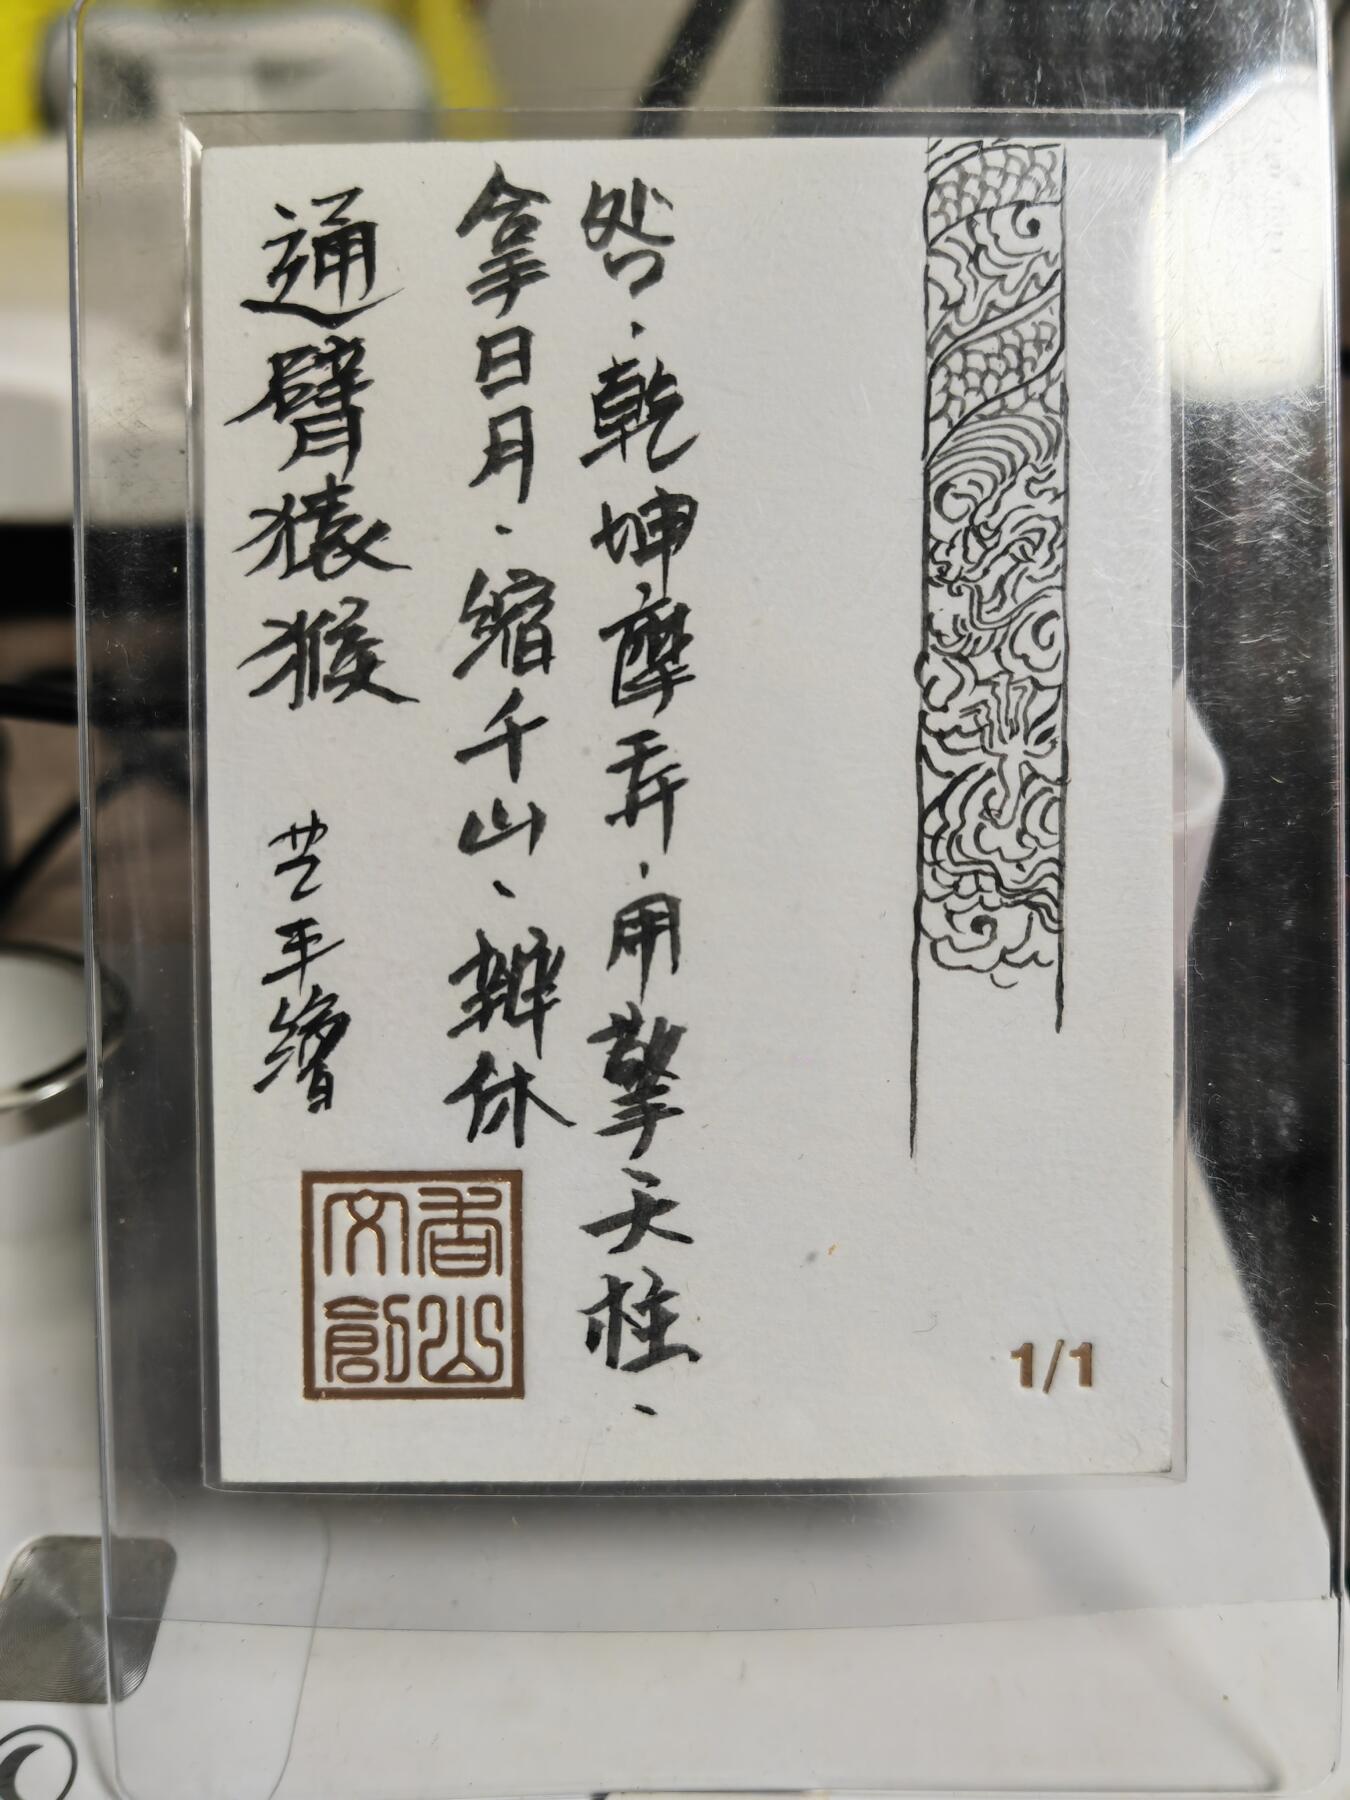 通臂猿猴
拿日月、缩千山、辨休
咎、乾坤摩弄、用擎天柱、
艺平繪
香山文創
1/1